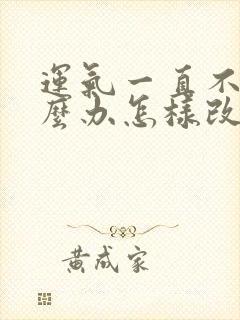 運氣一直不
麼办怎樣改
黄成家